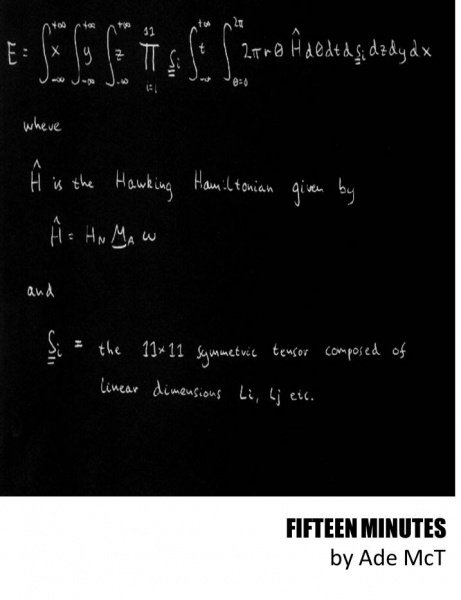 E = ∫_{-∞}^{+∞} x ∫_{-∞}^{+∞} y ∫_{-∞}^{+∞} z ∏_{i=1}^{11} S_i ∫_{-∞}^{+∞} t ∫_{θ=0}^{2π} 2πrθ Ĥ dθ dt dS_i dz dy dx
where
Ĥ is the Hawking Hamiltonian given by
Ĥ = H_N M_A ω
and
S_i = the 11×11 symmetric tensor composed of
linear dimensions Li, Lj etc.
FIFTEEN MINUTES
by Ade McT